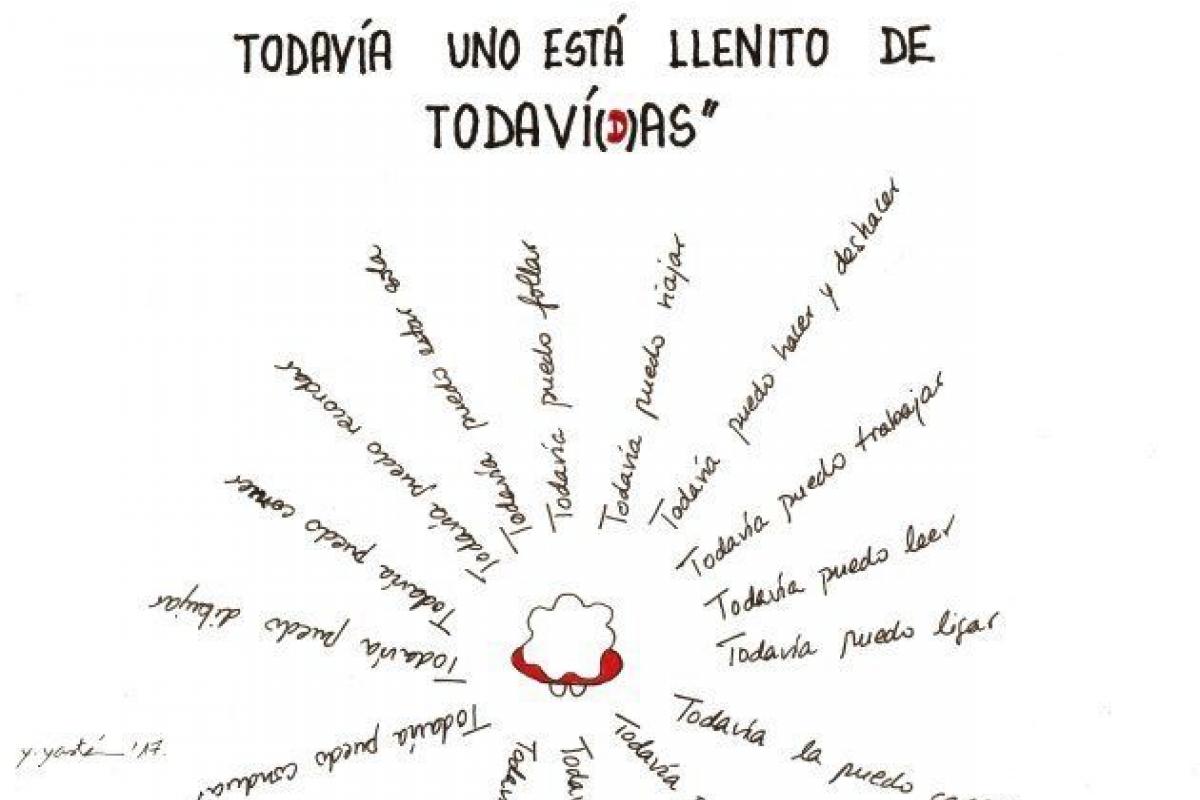 TODAVÍA UNO ESTÁ LLENITO DE
TODAVÍ(D)AS"
Todavía puedo conducir
Todavía puedo dibujar
Todavía puedo comer
Todavía puedo recordar
Todavía puedo estar
Todavía puedo follar
Todavía puedo viajar
Todavía puedo hacer y deshacer
Todavía puedo trabajar
Todavía puedo leer
Todavía puedo ligar
Todavía la puedo
Todavía
Todaví
Todaví
'17.